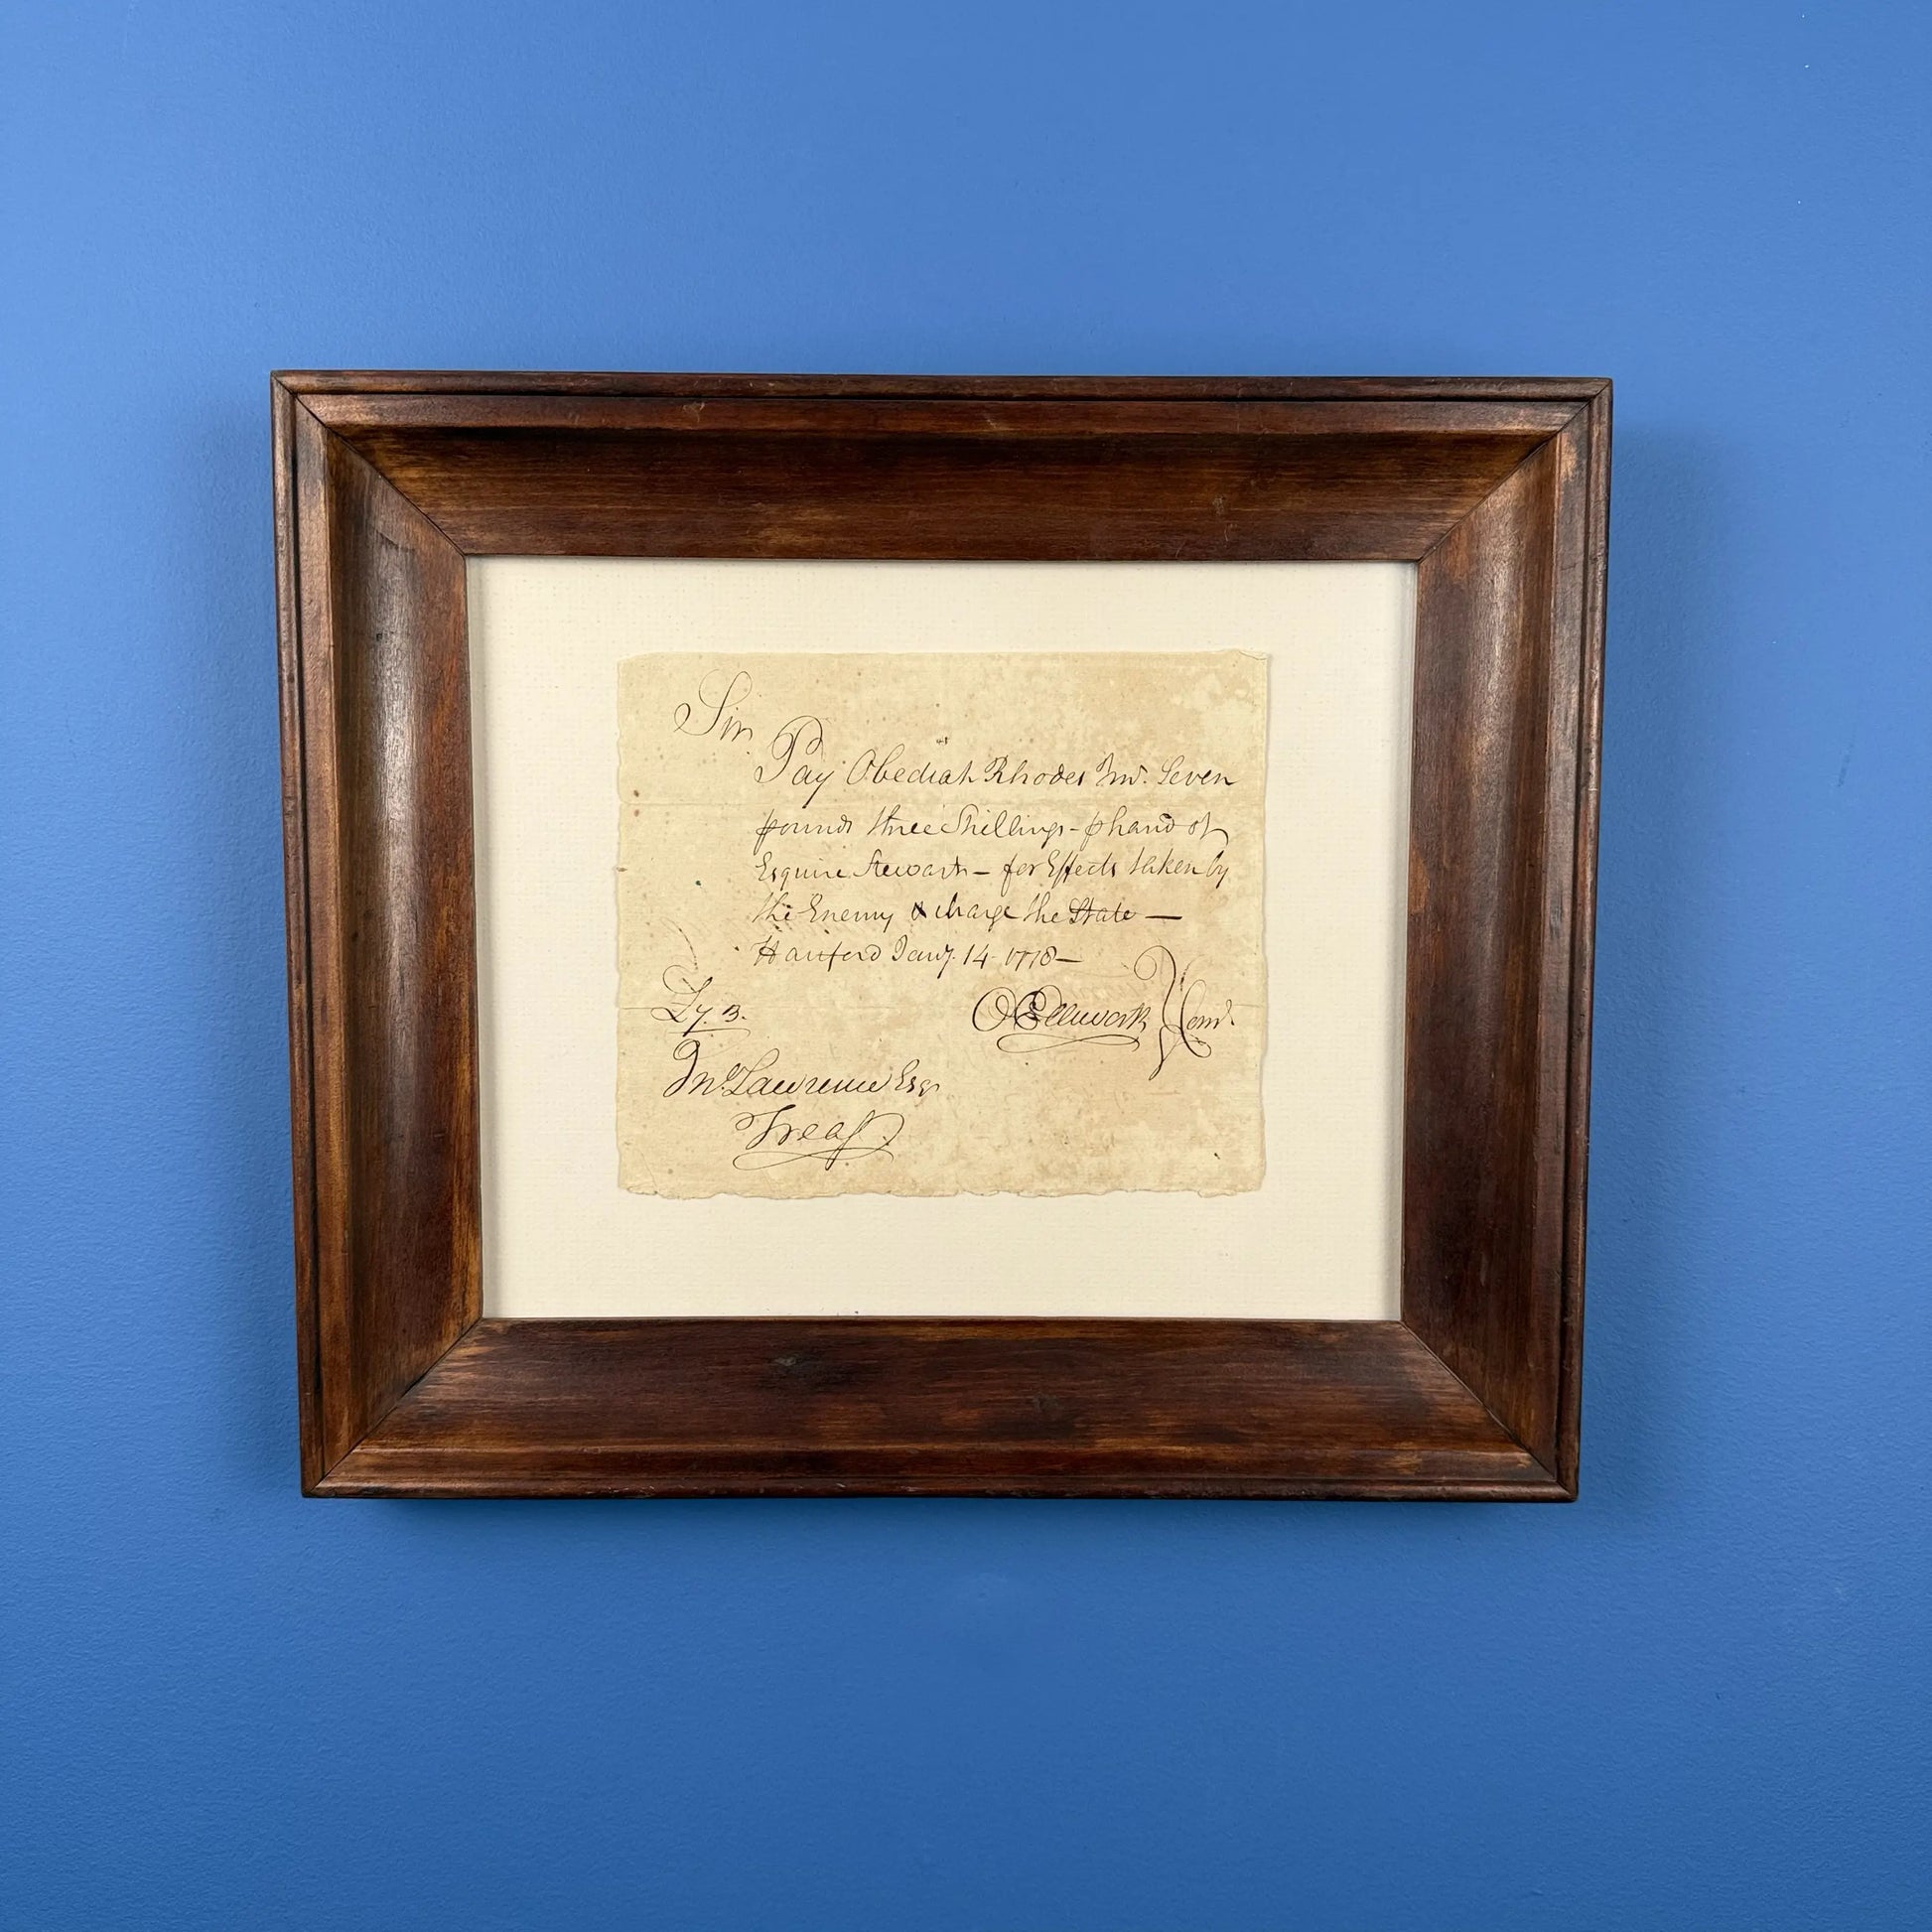 Sir,
Pay Obediah Rhodes Jnr. Seven
pounds three Shillings - ⅌ hand of
Esquire Stewart – for Effects taken by
the Enemy & charge the State —
Hartford Jany. 14 1778 —
O Ellsworth } Comt.
Jno. Lawrence Esqr
Treasr.